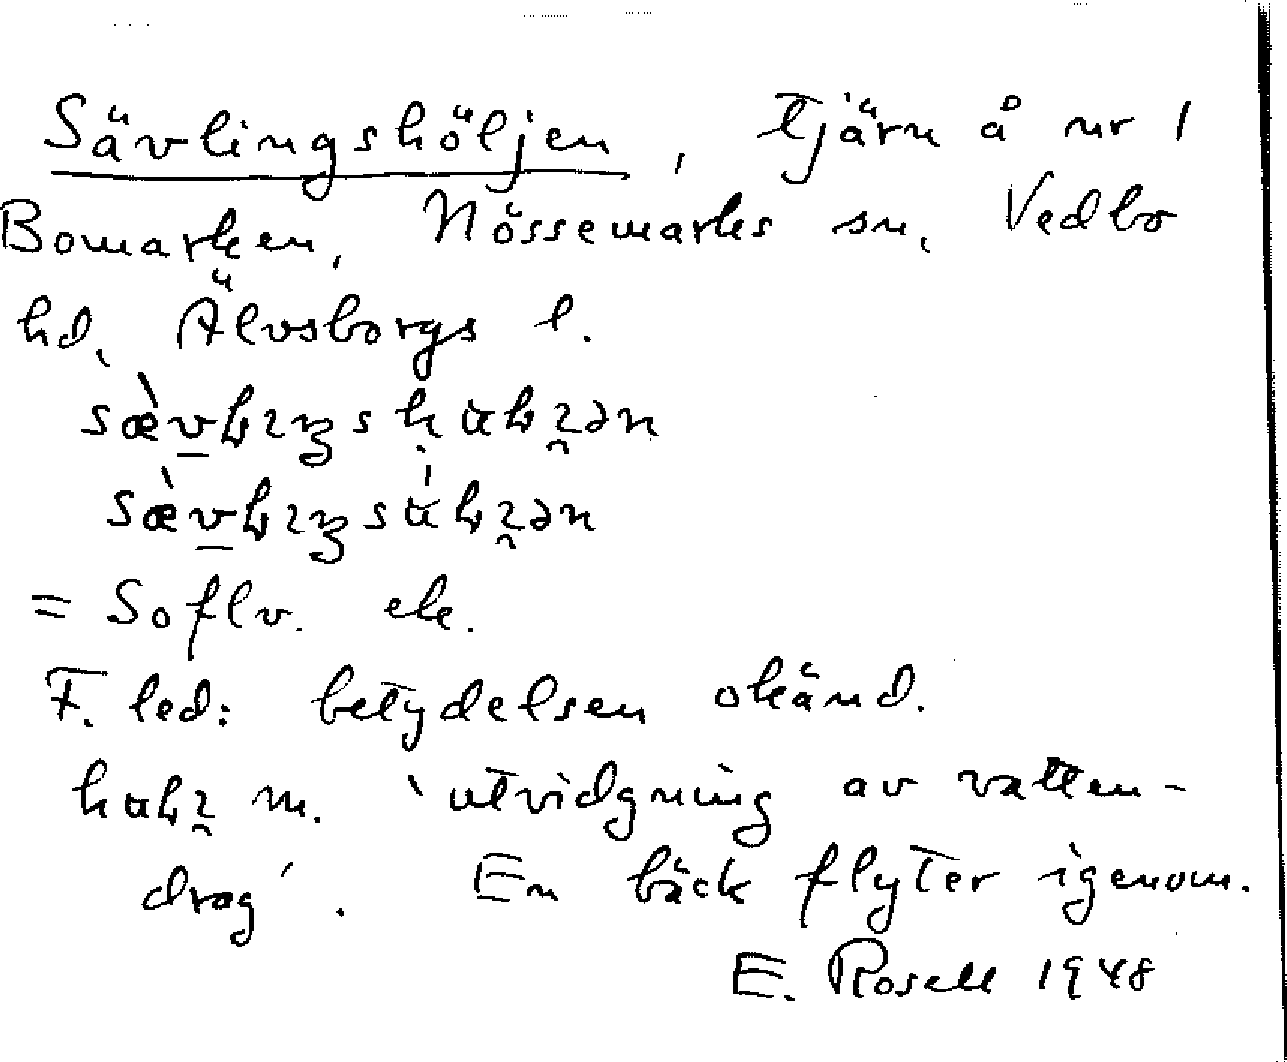 Sävlingshöljen, tjärn å nr 1
Bomarken, Nössemarks sn,  Vedbo
hd, Älvsborgs l.
= Soflv. ek.
F. led: betydelsen okänd.
m. 'utvidgning av vatten-
drag'. En bäck flyter igenom.
E. Rosell 1948